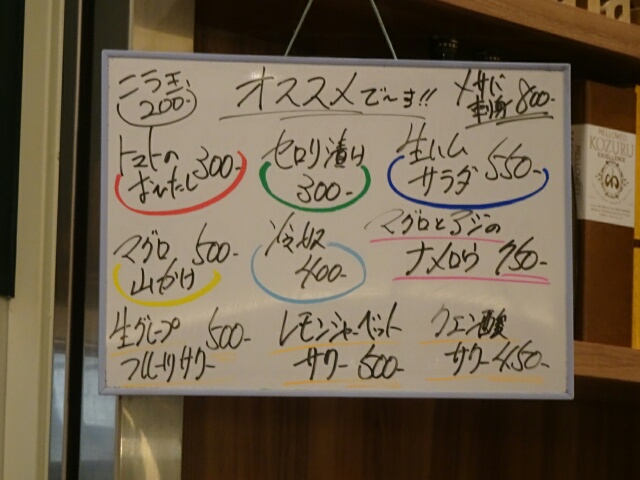 ニラ玉
200-
オススメで〜す!!
〆サバ
刺身 800-
トマトの
おひたし 300-
セロリ漬け
300-
生ハム
サラダ 550-
マグロ
山かけ 500-
冷奴
400-
マグロとアジの
ナメロウ 750-
生グレープ
フルーツサワー 500-
レモンシャーベット
サワー 500-
クエン酸
サワー 450-
KOZURU
EXCELLENCE